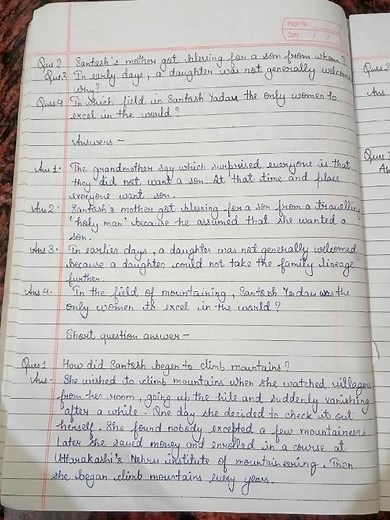 Page No.
Date / /
Que 2 Santosh's mother got blessing for a son from whom?
Que3 In early days, a daughter was not generally welcome
why?
Que4 In which field in Santosh Yadav the only women to
excel in the world?
Answers -
Ans 1. The grandmother say which surprised everyone is that
they did not want a son. At that time and place
everyone want son.
Ans 2. Santash's mother got blusing for a son from a travelling
'holy man' because he assumed that she wanted a
son.
Ans 3. In earlier days, a daughter was not generally welcomed
because a daughter could not take the family lineage
further.
Ans 4. In the field of mountaining, Santosh Yadav was the
only women to excel in the world?
Short question answer -
Ques 1 How did Santosh began to climb mountains?
Ans- She wished to climb mountains when she watched villagers
from her room, going up the hile and suddenly vanishing
after a while. One day she decided to check it out
herself. She found nobody excepted a few mountaineers
later she saved money and enrolled in a course at
Uttarakashi's Nehru institute of mountaineering. Then
she began climb mountains every years.
Ques 2
Ans
Ques